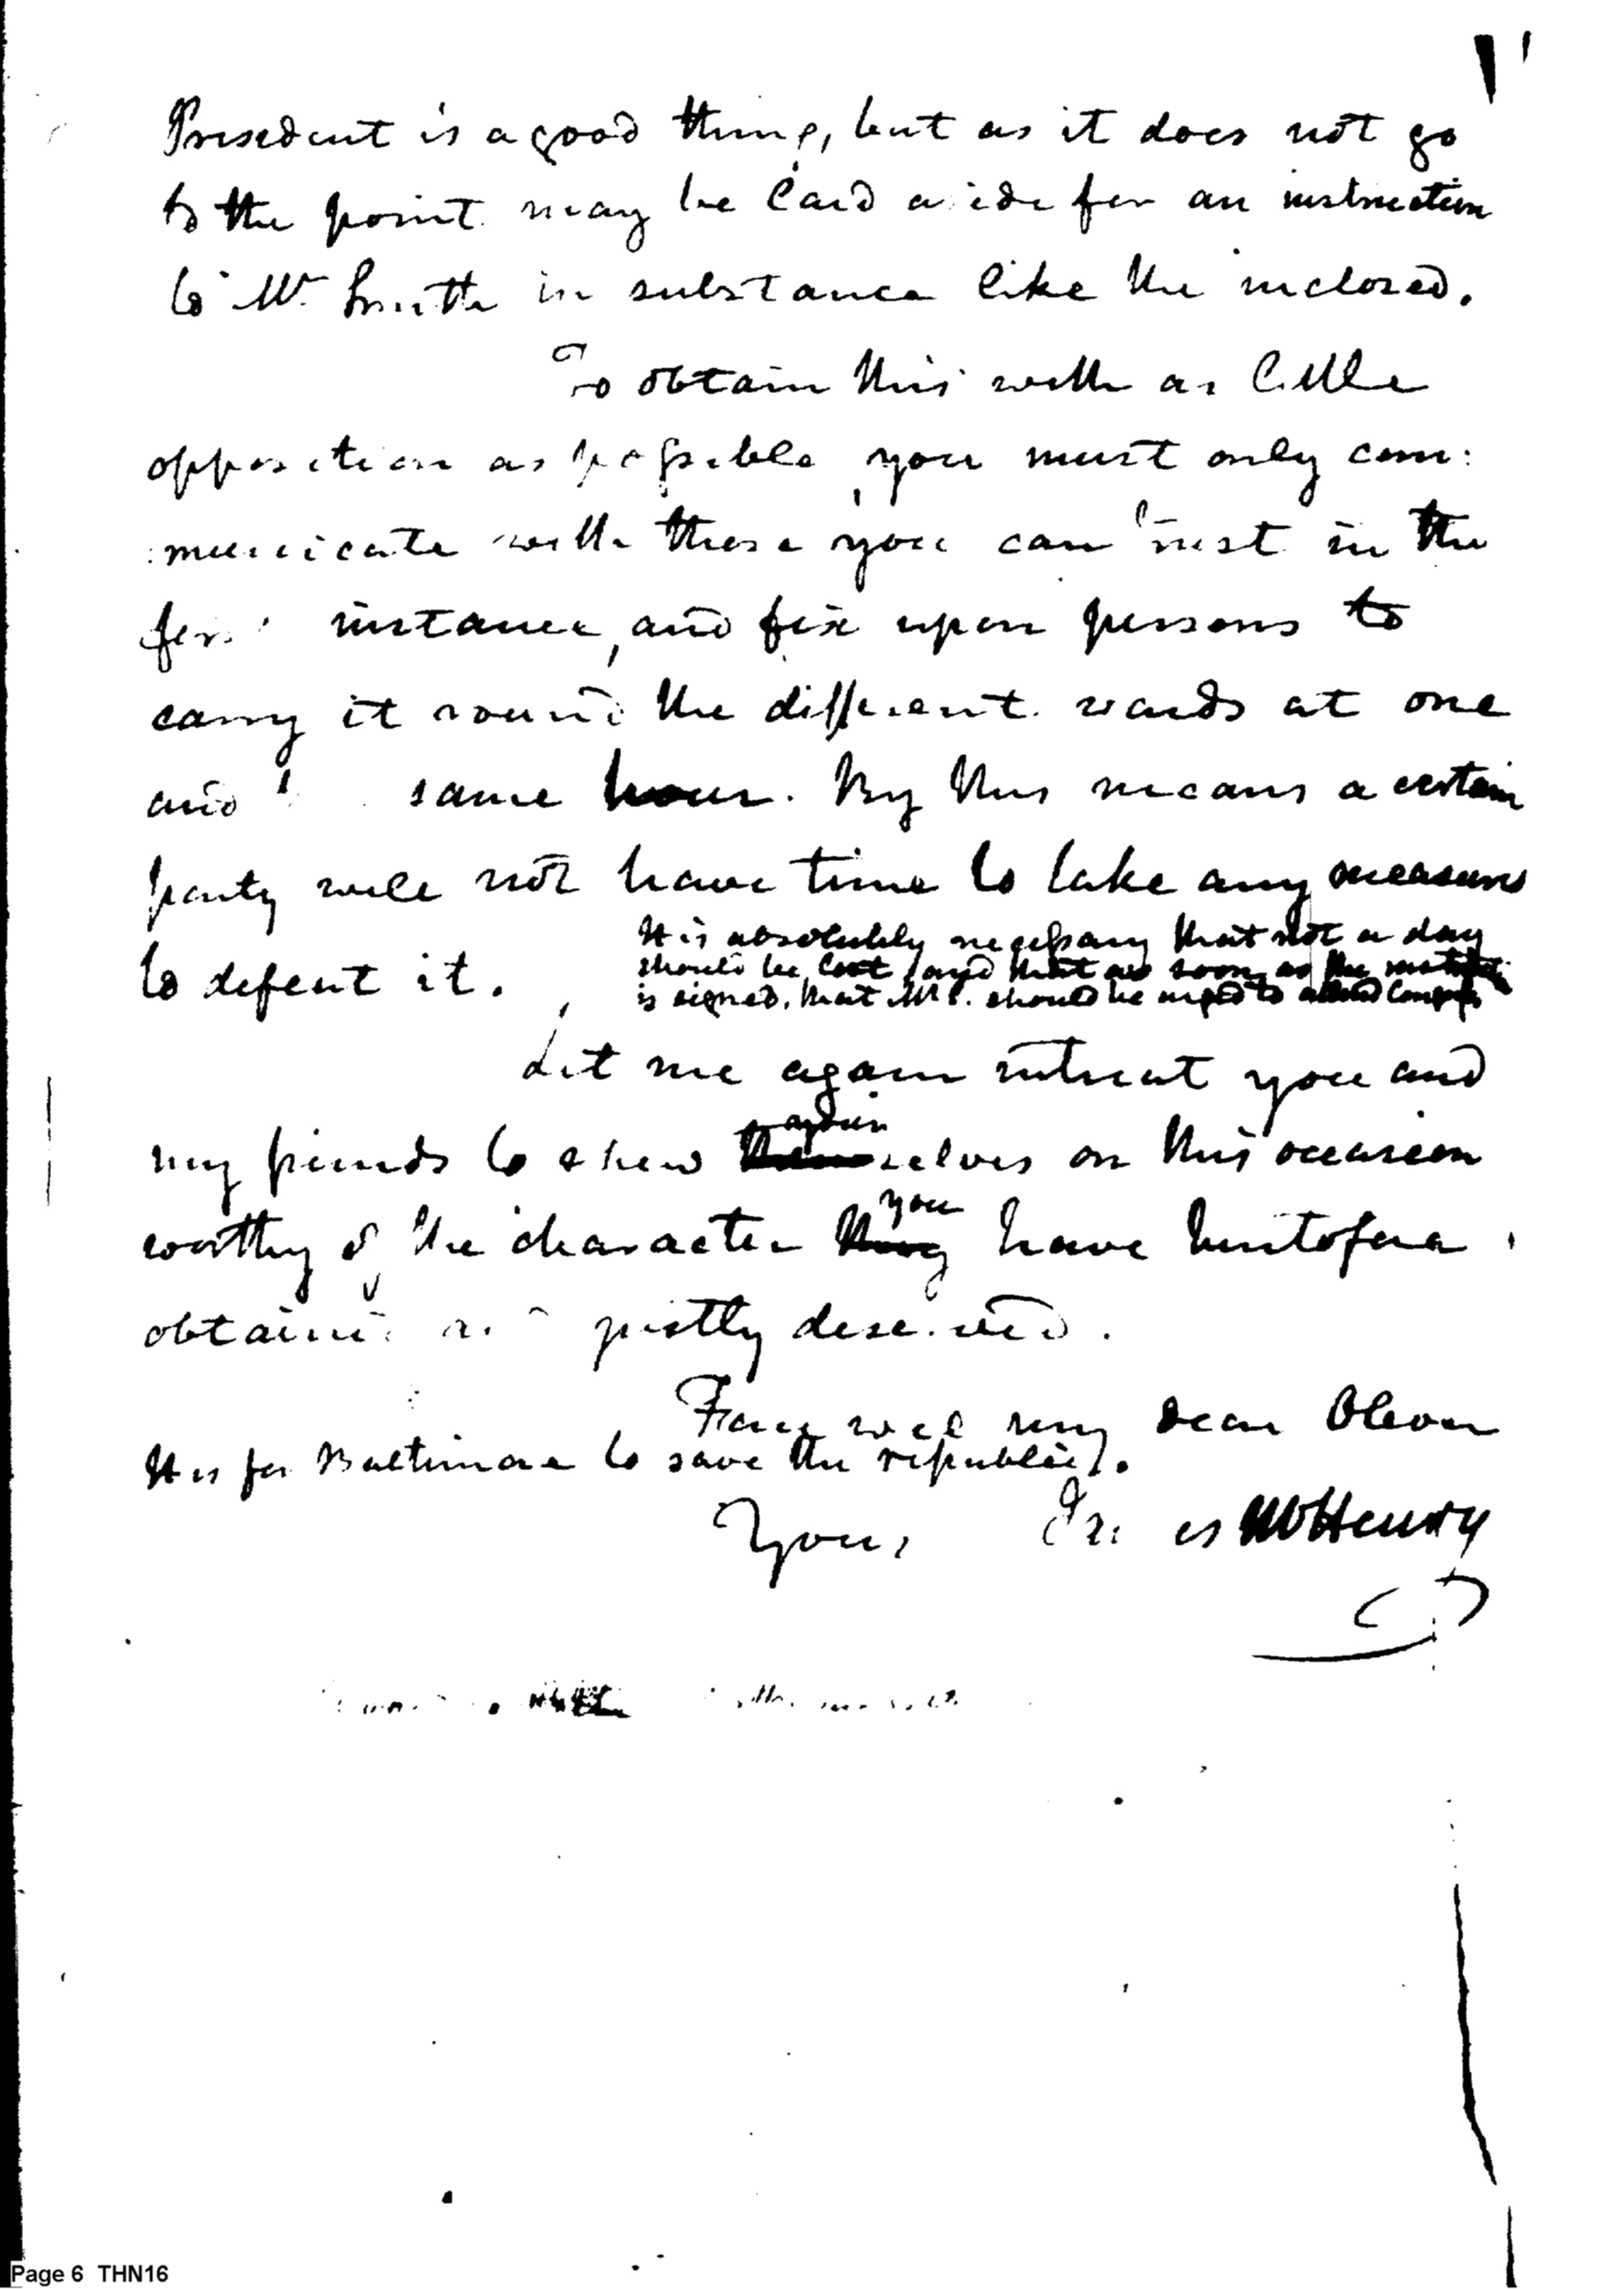 President is a good thing, but as it does not go
to the point may be laid aside for an instruction
to Mr. Smith in substance like the inclosed.
To obtain this with as little
opposition as possible, you must only com:
:municate with those you can trust in the
first instance, and fix upon persons to
carry it round the different wards at one
and same hour. By this means a certain
party will not have time to take any measures
to defeat it.
It is absolutely necessary that not a day
should be lost, and that as soon as the
is signed, that Mr S. should be urged to Congress
Let me again intreat you and
your
my friends to shew themselves on this occasion
you
worthy of the character they have heretofore
obtained and justly deserved.
Farewel my dear Oliver
It is for Baltimore to save the republic.
Yours McHenry
Page 6 THN16